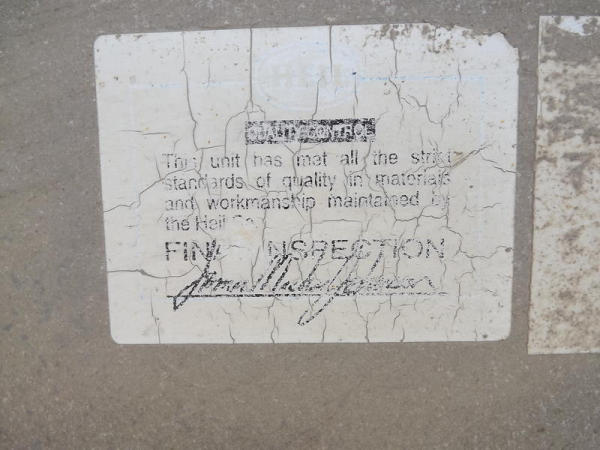 HEIL
QUALITY CONTROL
This unit has met all the strict
standards of quality in materials
and workmanship maintained by
the Heil Co.
FINAL INSPECTION
James